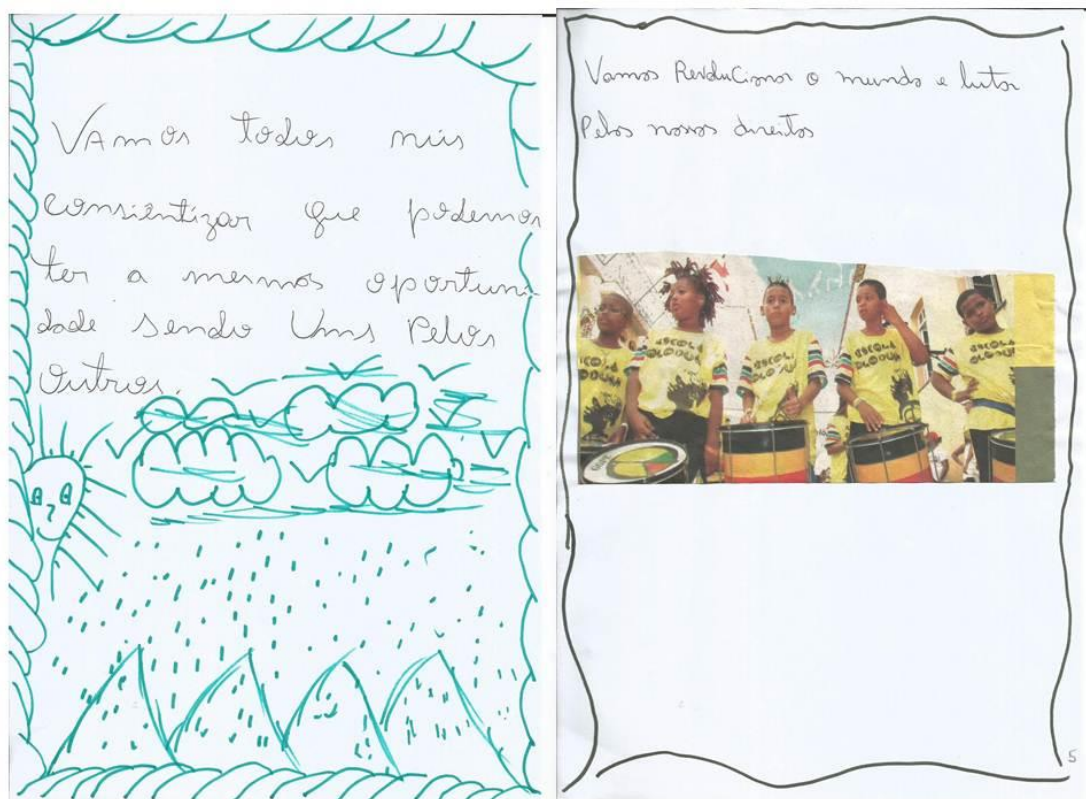 VAmos todos nós
consientizar que podemos
ter a mesmos oportuni-
dade sendo Uns Pelos
Outros.
Vamos RevoluCionar o mundo e lutar
Pelos nossos direitos
ESCOLA
OLODUM
ESCOLA
OLODUM
5